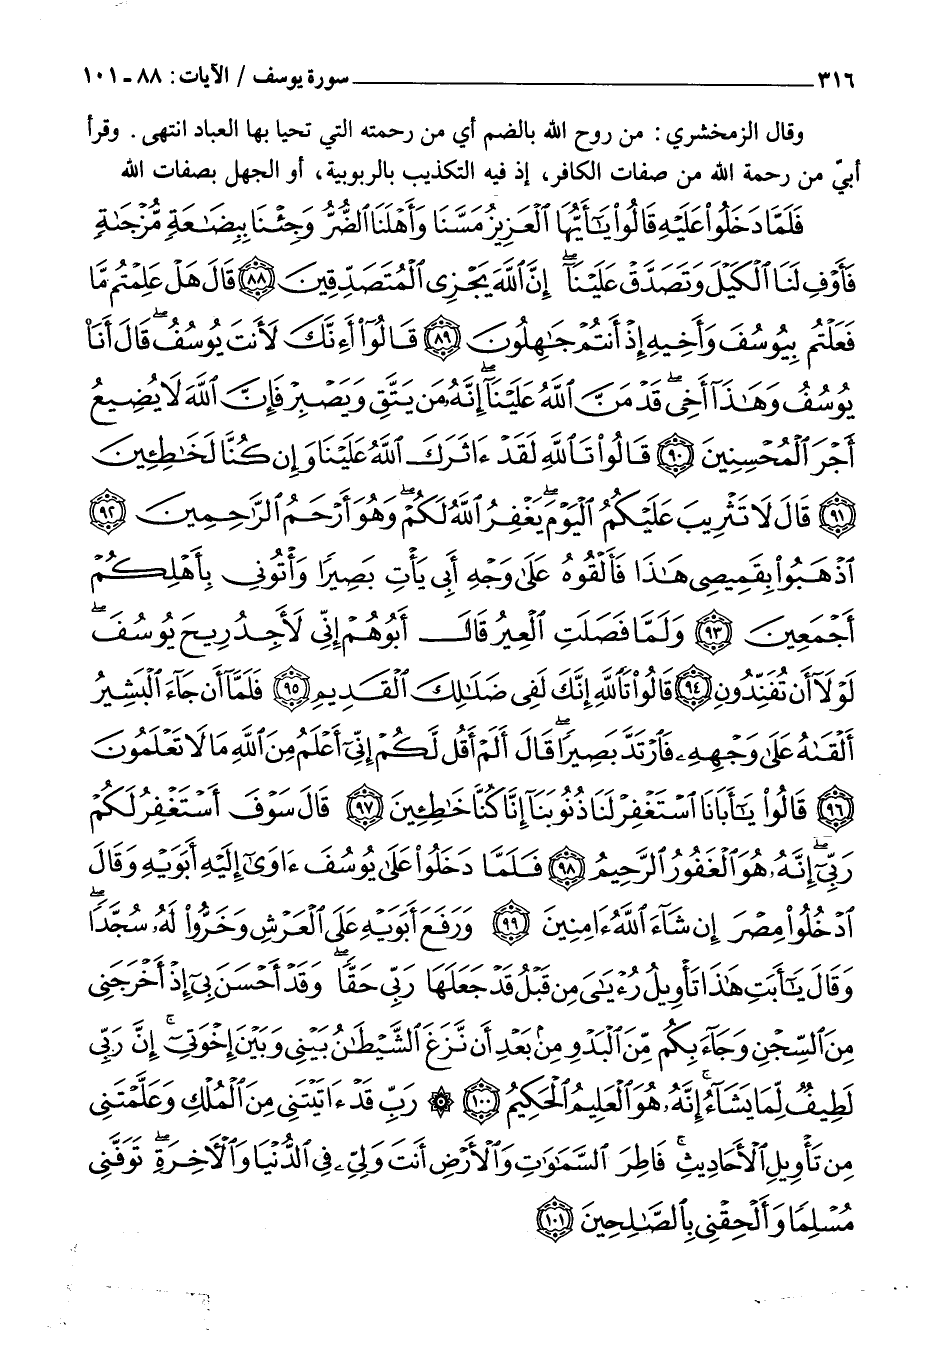 ٣١٦ سورة يوسف / الآيات: ٨٨ - ١٠١
وقال الزمخشري: من روح الله بالضم أي من رحمته التي تحيا بها العباد انتهى. وقرأ
أبيّ من رحمة الله من صفات الكافر، إذ فيه التكذيب بالربوبية، أو الجهل بصفات الله
فَلَمَّا دَخَلُوا۟ عَلَيْهِ قَالُوا۟ يَٰٓأَيُّهَا ٱلْعَزِيزُ مَسَّنَا وَأَهْلَنَا ٱلضُّرُّ وَجِئْنَا بِبِضَٰعَةٍ مُّزْجَىٰةٍ
فَأَوْفِ لَنَا ٱلْكَيْلَ وَتَصَدَّقْ عَلَيْنَآ ۖ إِنَّ ٱللَّهَ يَجْزِى ٱلْمُتَصَدِّقِينَ ٨٨ قَالَ هَلْ عَلِمْتُم مَّا
فَعَلْتُم بِيُوسُفَ وَأَخِيهِ إِذْ أَنتُمْ جَٰهِلُونَ ٨٩ قَالُوٓا۟ أَءِنَّكَ لَأَنتَ يُوسُفُ ۖ قَالَ أَنَا۠
يُوسُفُ وَهَٰذَآ أَخِى ۖ قَدْ مَنَّ ٱللَّهُ عَلَيْنَآ ۖ إِنَّهُۥ مَن يَتَّقِ وَيَصْبِرْ فَإِنَّ ٱللَّهَ لَا يُضِيعُ
أَجْرَ ٱلْمُحْسِنِينَ ٩٠ قَالُوا۟ تَٱللَّهِ لَقَدْ ءَاثَرَكَ ٱللَّهُ عَلَيْنَا وَإِن كُنَّا لَخَٰطِـِٔينَ
٩١ قَالَ لَا تَثْرِيبَ عَلَيْكُمُ ٱلْيَوْمَ ۖ يَغْفِرُ ٱللَّهُ لَكُمْ ۖ وَهُوَ أَرْحَمُ ٱلرَّٰحِمِينَ ٩٢
ٱذْهَبُوا۟ بِقَمِيصِى هَٰذَا فَأَلْقُوهُ عَلَىٰ وَجْهِ أَبِى يَأْتِ بَصِيرًا وَأْتُونِى بِأَهْلِكُمْ
أَجْمَعِينَ ٩٣ وَلَمَّا فَصَلَتِ ٱلْعِيرُ قَالَ أَبُوهُمْ إِنِّى لَأَجِدُ رِيحَ يُوسُفَ ۖ
لَوْلَآ أَن تُفَنِّدُونِ ٩٤ قَالُوا۟ تَٱللَّهِ إِنَّكَ لَفِى ضَلَٰلِكَ ٱلْقَدِيمِ ٩٥ فَلَمَّآ أَن جَآءَ ٱلْبَشِيرُ
أَلْقَىٰهُ عَلَىٰ وَجْهِهِۦ فَٱرْتَدَّ بَصِيرًا ۖ قَالَ أَلَمْ أَقُل لَّكُمْ إِنِّىٓ أَعْلَمُ مِنَ ٱللَّهِ مَا لَا تَعْلَمُونَ
٩٦ قَالُوا۟ يَٰٓأَبَانَا ٱسْتَغْفِرْ لَنَا ذُنُوبَنَآ إِنَّا كُنَّا خَٰطِـِٔينَ ٩٧ قَالَ سَوْفَ أَسْتَغْفِرُ لَكُمْ
رَبِّىٓ ۖ إِنَّهُۥ هُوَ ٱلْغَفُورُ ٱلرَّحِيمُ ٩٨ فَلَمَّا دَخَلُوا۟ عَلَىٰ يُوسُفَ ءَاوَىٰٓ إِلَيْهِ أَبَوَيْهِ وَقَالَ
ٱدْخُلُوا۟ مِصْرَ إِن شَآءَ ٱللَّهُ ءَامِنِينَ ٩٩ وَرَفَعَ أَبَوَيْهِ عَلَى ٱلْعَرْشِ وَخَرُّوا۟ لَهُۥ سُجَّدًا ۖ
وَقَالَ يَٰٓأَبَتِ هَٰذَا تَأْوِيلُ رُءْيَٰىَ مِن قَبْلُ قَدْ جَعَلَهَا رَبِّى حَقًّا ۖ وَقَدْ أَحْسَنَ بِىٓ إِذْ أَخْرَجَنِى
مِنَ ٱلسِّجْنِ وَجَآءَ بِكُم مِّنَ ٱلْبَدْوِ مِنۢ بَعْدِ أَن نَّزَغَ ٱلشَّيْطَٰنُ بَيْنِى وَبَيْنَ إِخْوَتِىٓ ۚ إِنَّ رَبِّى
لَطِيفٌ لِّمَا يَشَآءُ ۚ إِنَّهُۥ هُوَ ٱلْعَلِيمُ ٱلْحَكِيمُ ١٠٠ ۞ رَبِّ قَدْ ءَاتَيْتَنِى مِنَ ٱلْمُلْكِ وَعَلَّمْتَنِى
مِن تَأْوِيلِ ٱلْأَحَادِيثِ ۚ فَاطِرَ ٱلسَّمَٰوَٰتِ وَٱلْأَرْضِ أَنتَ وَلِىِّۦ فِى ٱلدُّنْيَا وَٱلْءَاخِرَةِ ۖ تَوَفَّنِى
مُسْلِمًا وَأَلْحِقْنِى بِٱلصَّٰلِحِينَ ١٠١